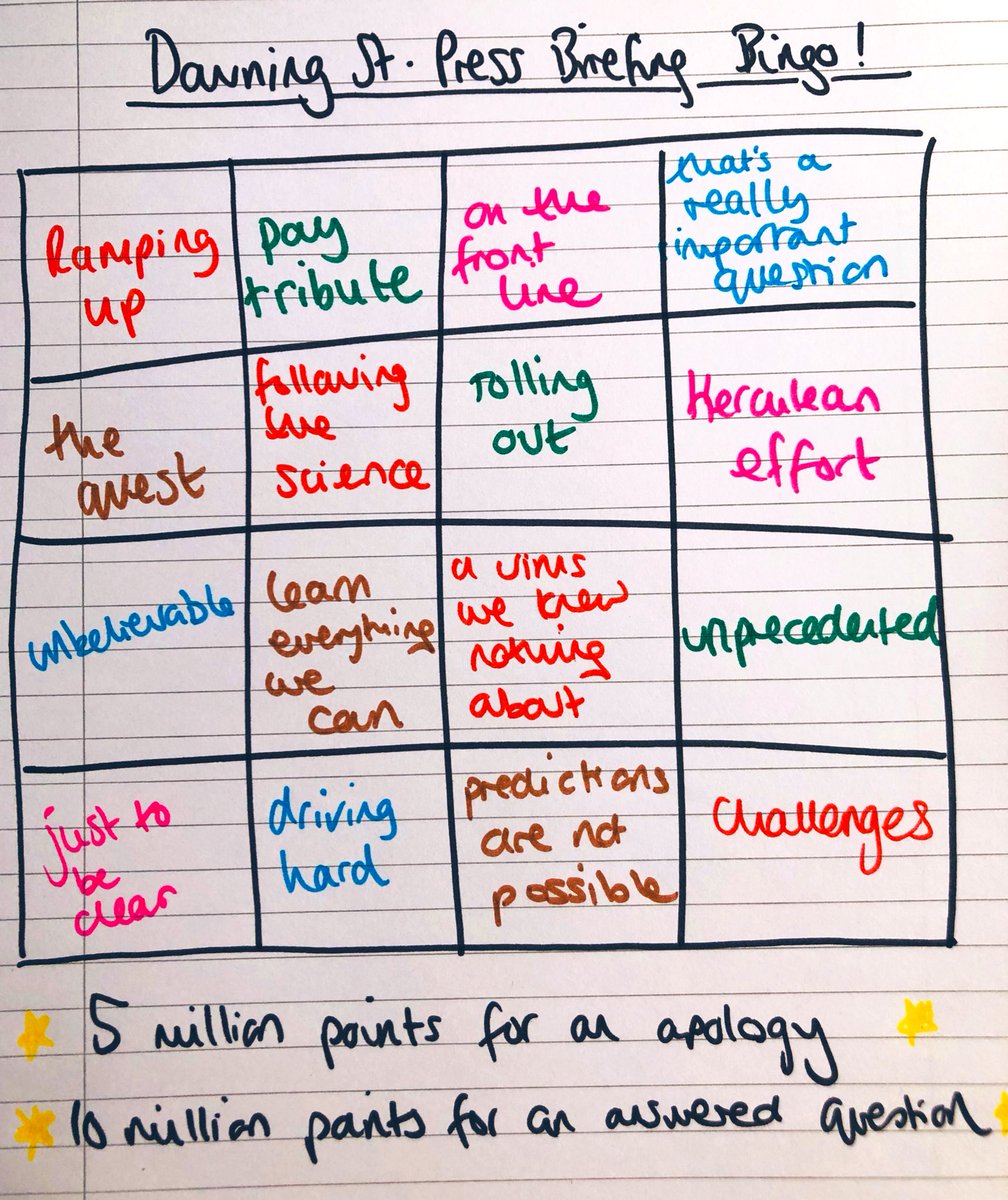 Downing St. Press Briefing Bingo!
Ramping
up
pay
tribute
on the
front
line
that's a
really
important
question
the
quest
following
the
science
rolling
out
Herculean
effort
unbelievable
learn
everything
we
can
a virus
we knew
nothing
about
unprecedented
just to
be
clear
driving
hard
predictions
are not
possible
Challenges
5 million points for an apology
10 million points for an answered question